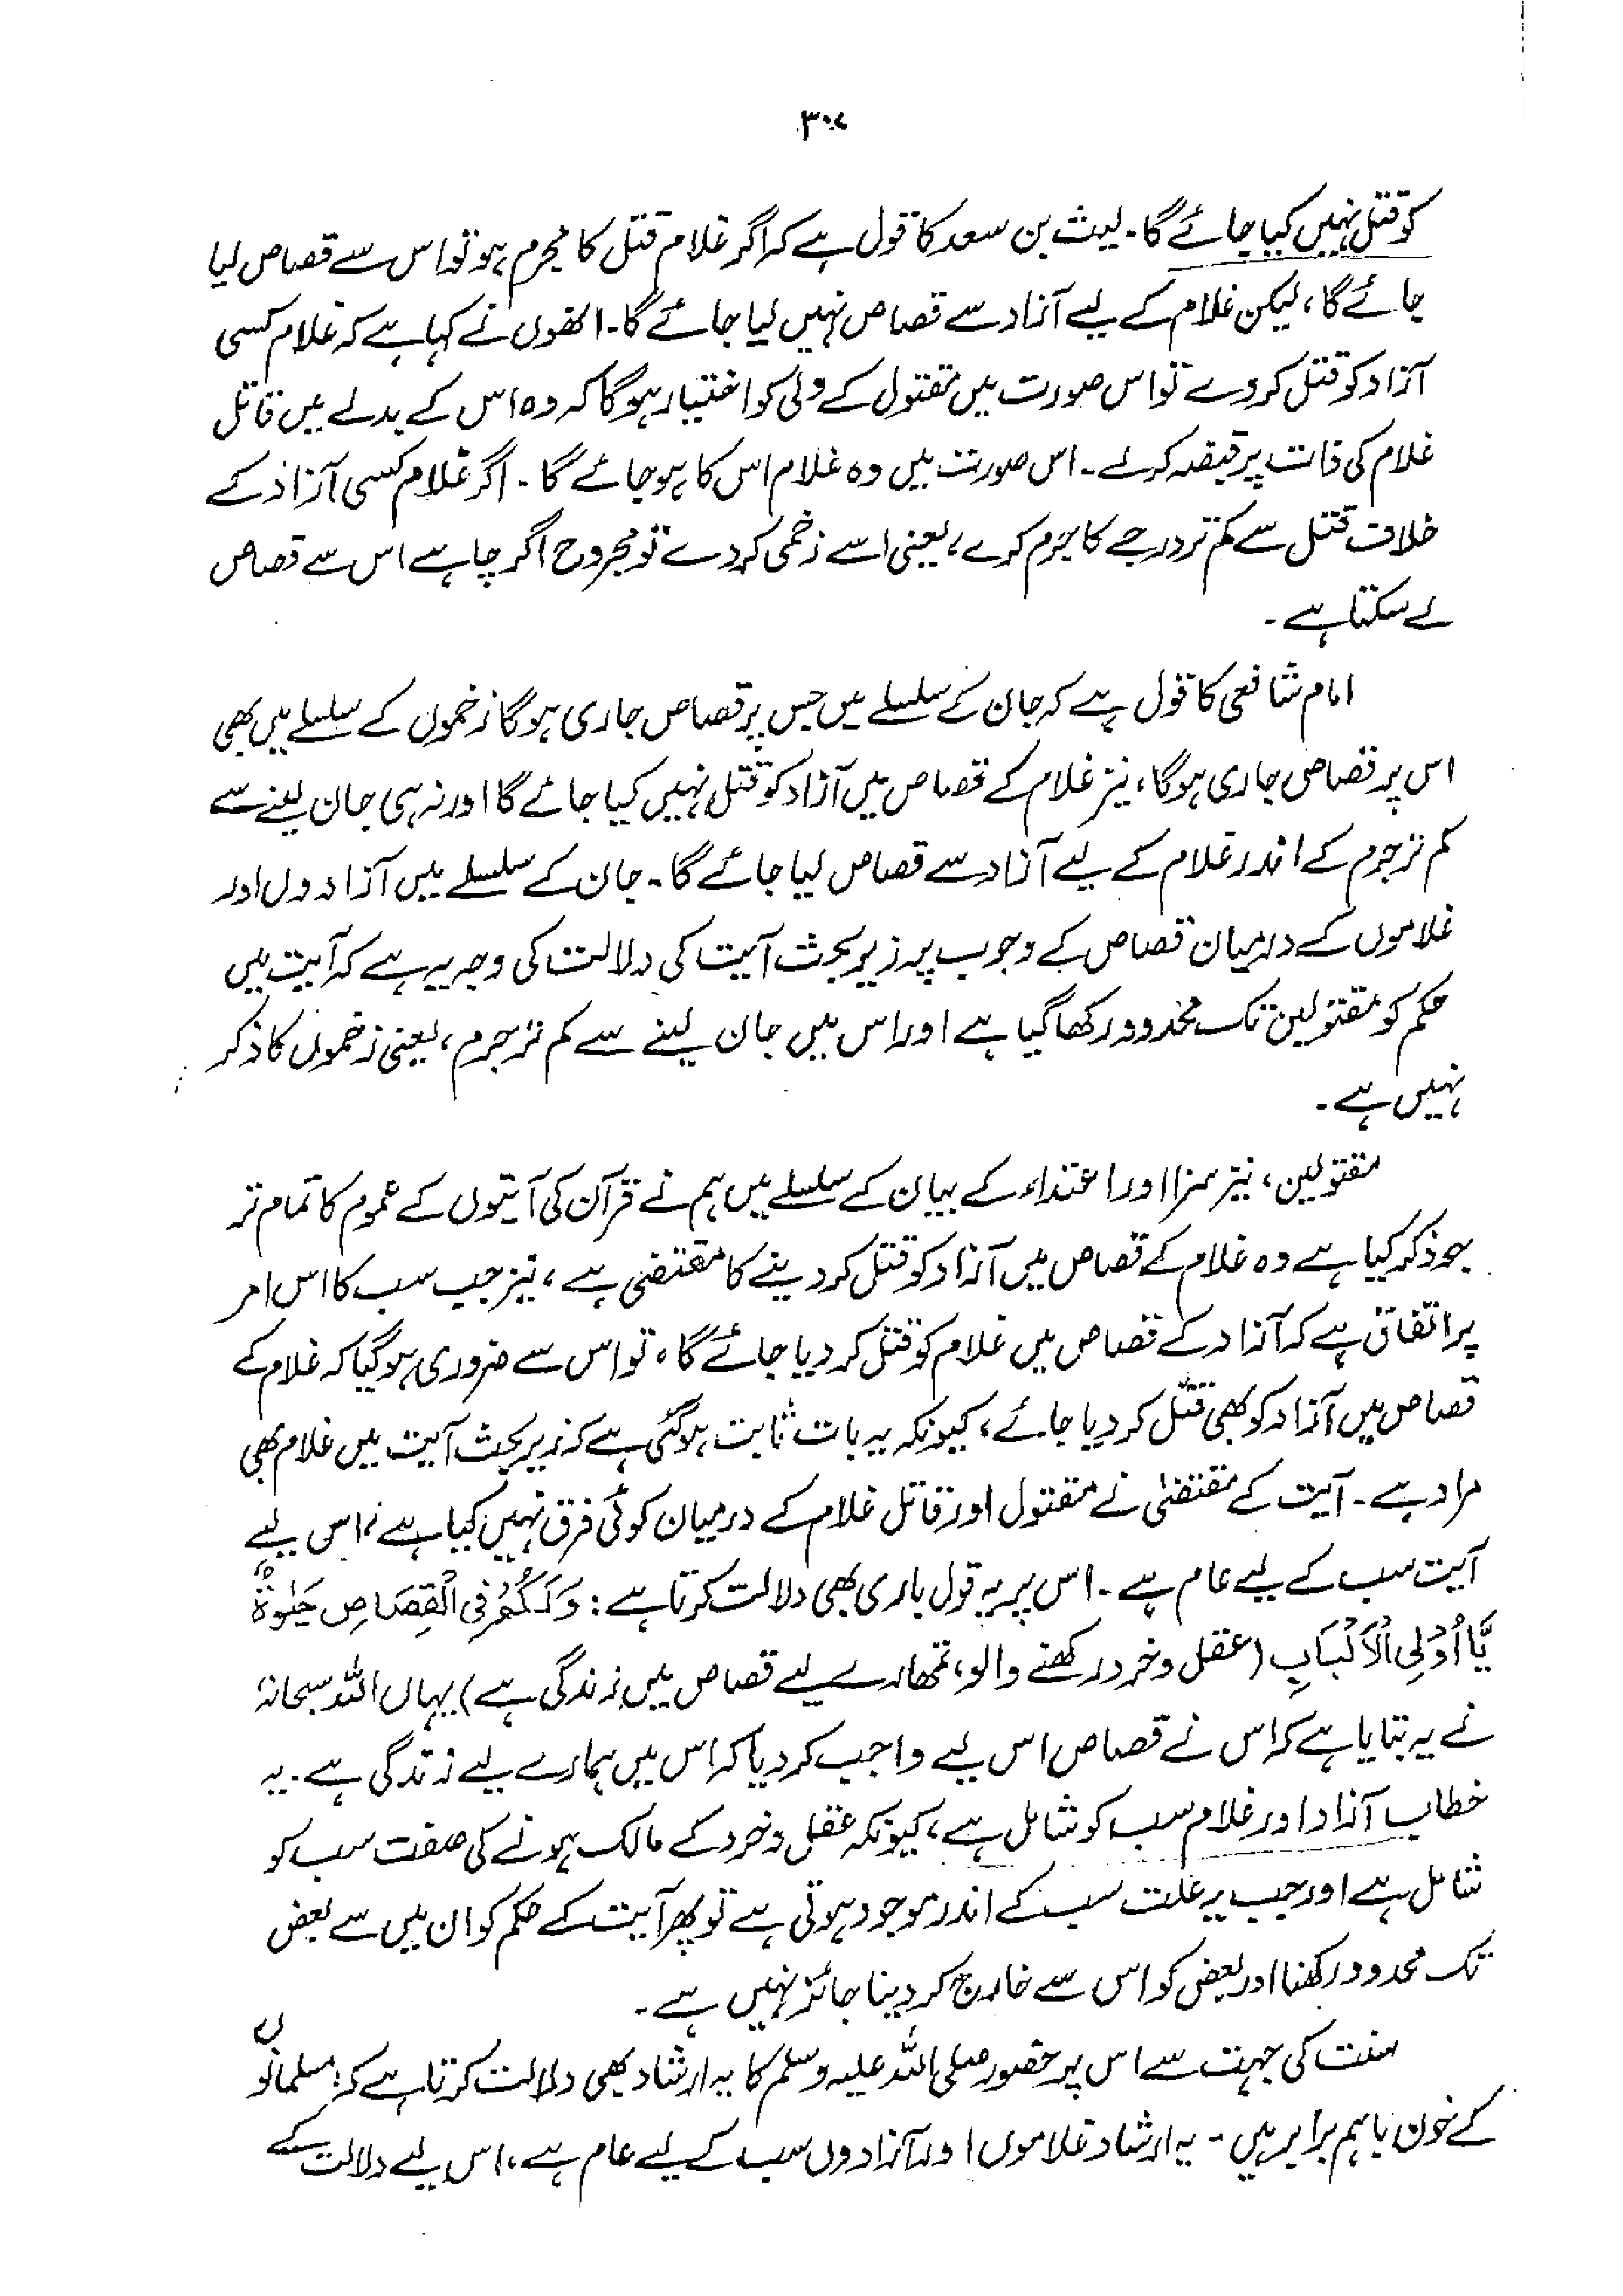 ۳۰۷
کو قتل نہیں کیا جائے گا۔ لیث بن سعد کا قول ہے کہ اگر غلام قتل کا مجرم ہو تو اس سے قصاص لیا
جائے گا، لیکن غلام کے لیے آزاد سے قصاص نہیں لیا جائے گا۔ انھوں نے کہا ہے کہ غلام کسی
آزاد کو قتل کر دے تو اس صورت میں مقتول کے ولی کو اختیار ہوگا کہ وہ اس کے بدلے میں قاتل
غلام کی ذات پر قبضہ کرلے۔ اس صورت میں وہ غلام اس کا ہو جائے گا۔ اگر غلام کسی آزاد کے
خلاف قتل سے کم تر درجے کا جرم کرے، یعنی اسے زخمی کر دے تو مجروح اگر چاہے اس سے قصاص
لے سکتا ہے۔
امام شافعی کا قول ہے کہ جان کے سلسلے میں جس پر قصاص جاری ہوگا زخموں کے سلسلے میں بھی
اس پر قصاص جاری ہوگا، نیز غلام کے قصاص میں آزاد کو قتل نہیں کیا جائے گا اور نہ ہی جان لینے سے
کم تر جرم کے اندر غلام کے لیے آزاد سے قصاص لیا جائے گا۔ جان کے سلسلے میں آزادوں اور
غلاموں کے درمیان قصاص کے وجوب پر زیر بحث آیت کی دلالت کی وجہ یہ ہے کہ آیت میں
حکم کو مقتولین تک محدود رکھا گیا ہے اور اس میں جان لینے سے کم تر جرم، یعنی زخموں کا ذکر
نہیں ہے۔
مقتولین، نیز سزا اور اعتداء کے بیان کے سلسلے میں ہم نے قرآن کی آیتوں کے عموم کا تمام تر
جو ذکر کیا ہے وہ غلام کے قصاص میں آزاد کو قتل کر دینے کا مقتضی ہے، نیز جب سب کا اس امر
پر اتفاق ہے کہ آزاد کے قصاص میں غلام کو قتل کر دیا جائے گا، تو اس سے ضروری ہو گیا کہ غلام کے
قصاص میں آزاد کو بھی قتل کر دیا جائے، کیونکہ یہ بات ثابت ہو گئی ہے کہ زیر بحث آیت میں غلام بھی
مراد ہے۔ آیت کے مقتضیٰ نے مقتول اور قاتل غلام کے درمیان کوئی فرق نہیں کیا ہے، اس لیے
آیت سب کے لیے عام ہے۔ اس پر یہ قول باری بھی دلالت کرتا ہے: وَلَكُمْ فِی الْقِصَاصِ حَیٰوةٌ
یَّا اُوْلِی الْاَلْبَابِ (عقل و خرد رکھنے والو، تمھارے لیے قصاص میں زندگی ہے) یہاں اللہ سبحانہٗ
نے یہ بتایا ہے کہ اس نے قصاص اس لیے واجب کر دیا کہ اس میں ہمارے لیے زندگی ہے۔ یہ
خطاب آزاد اور غلام سب کو شامل ہے، کیونکہ عقل و خرد کے مالک ہونے کی صفت سب کو
شامل ہے اور جب یہ علت سب کے اندر موجود ہوتی ہے تو پھر آیت کے حکم کو ان میں سے بعض
تک محدود رکھنا اور بعض کو اس سے خارج کر دینا جائز نہیں ہے۔
سنت کی جہت سے اس پر حضور صلی اللہ علیہ وسلم کا یہ ارشاد بھی دلالت کرتا ہے کہ: مسلمانوں
کے خون باہم برابر ہیں۔ یہ ارشاد غلاموں اور آزادوں سب کے لیے عام ہے، اس لیے دلالت کے